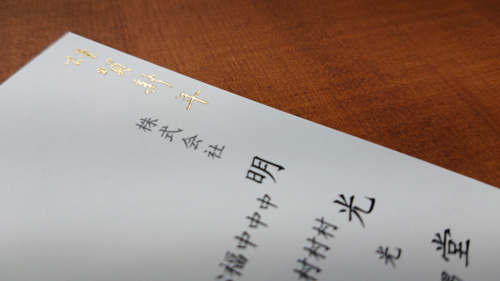 頌新年
株式会社明光堂
中村光
中村
中村
福